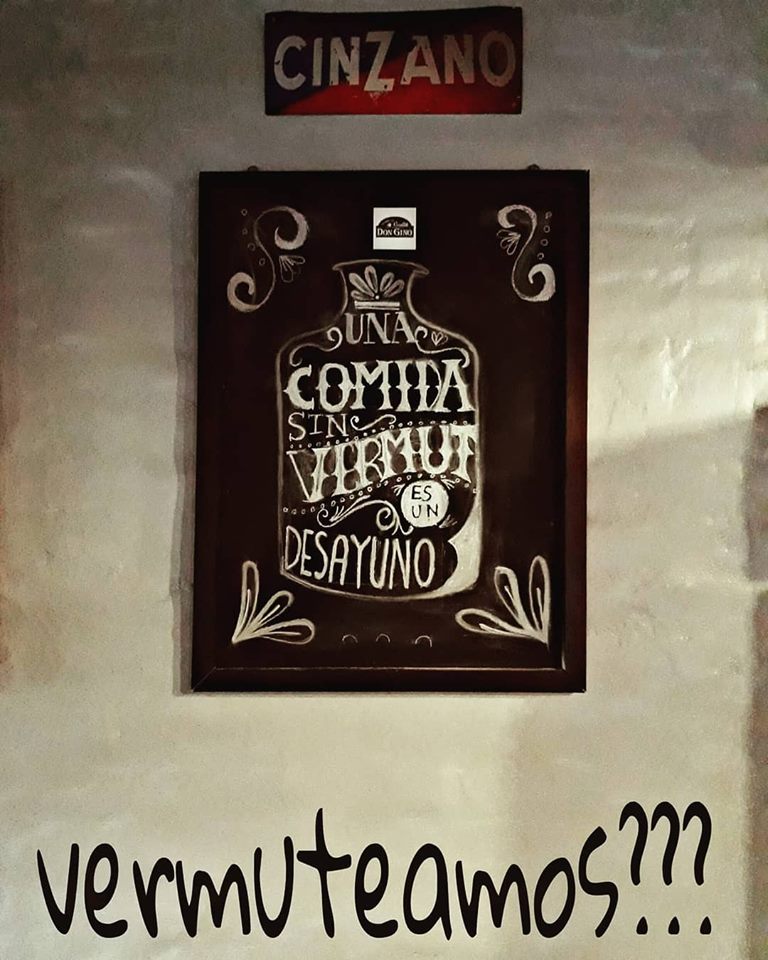 CINZANO
DON GINO
UNA
COMIDA
SIN
VERMUT
ES
UN
DESAYUNO
vermuteamos???